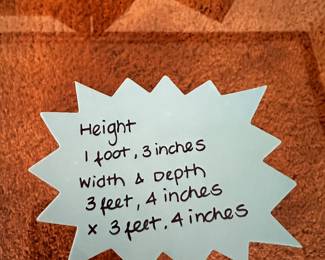 Height
1 foot, 3 inches
Width & Depth
3 feet, 4 inches
x 3 feet, 4 inches